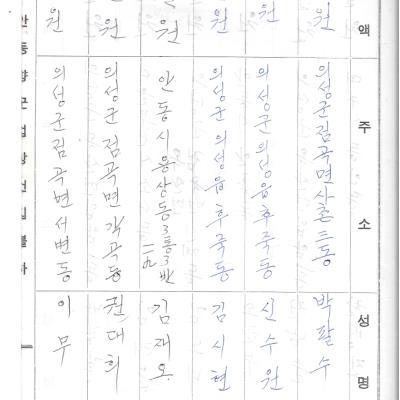 액 주소 성명
원 의성군점곡면사촌三동 박팔수
원 의성군의성읍후죽동 신수원
원 의성군의성읍후죽동 김시현
원 안동시용상동3통3반 김재오
원 의성군점곡면 동 권대희
원 의성군점곡면서변동 이무